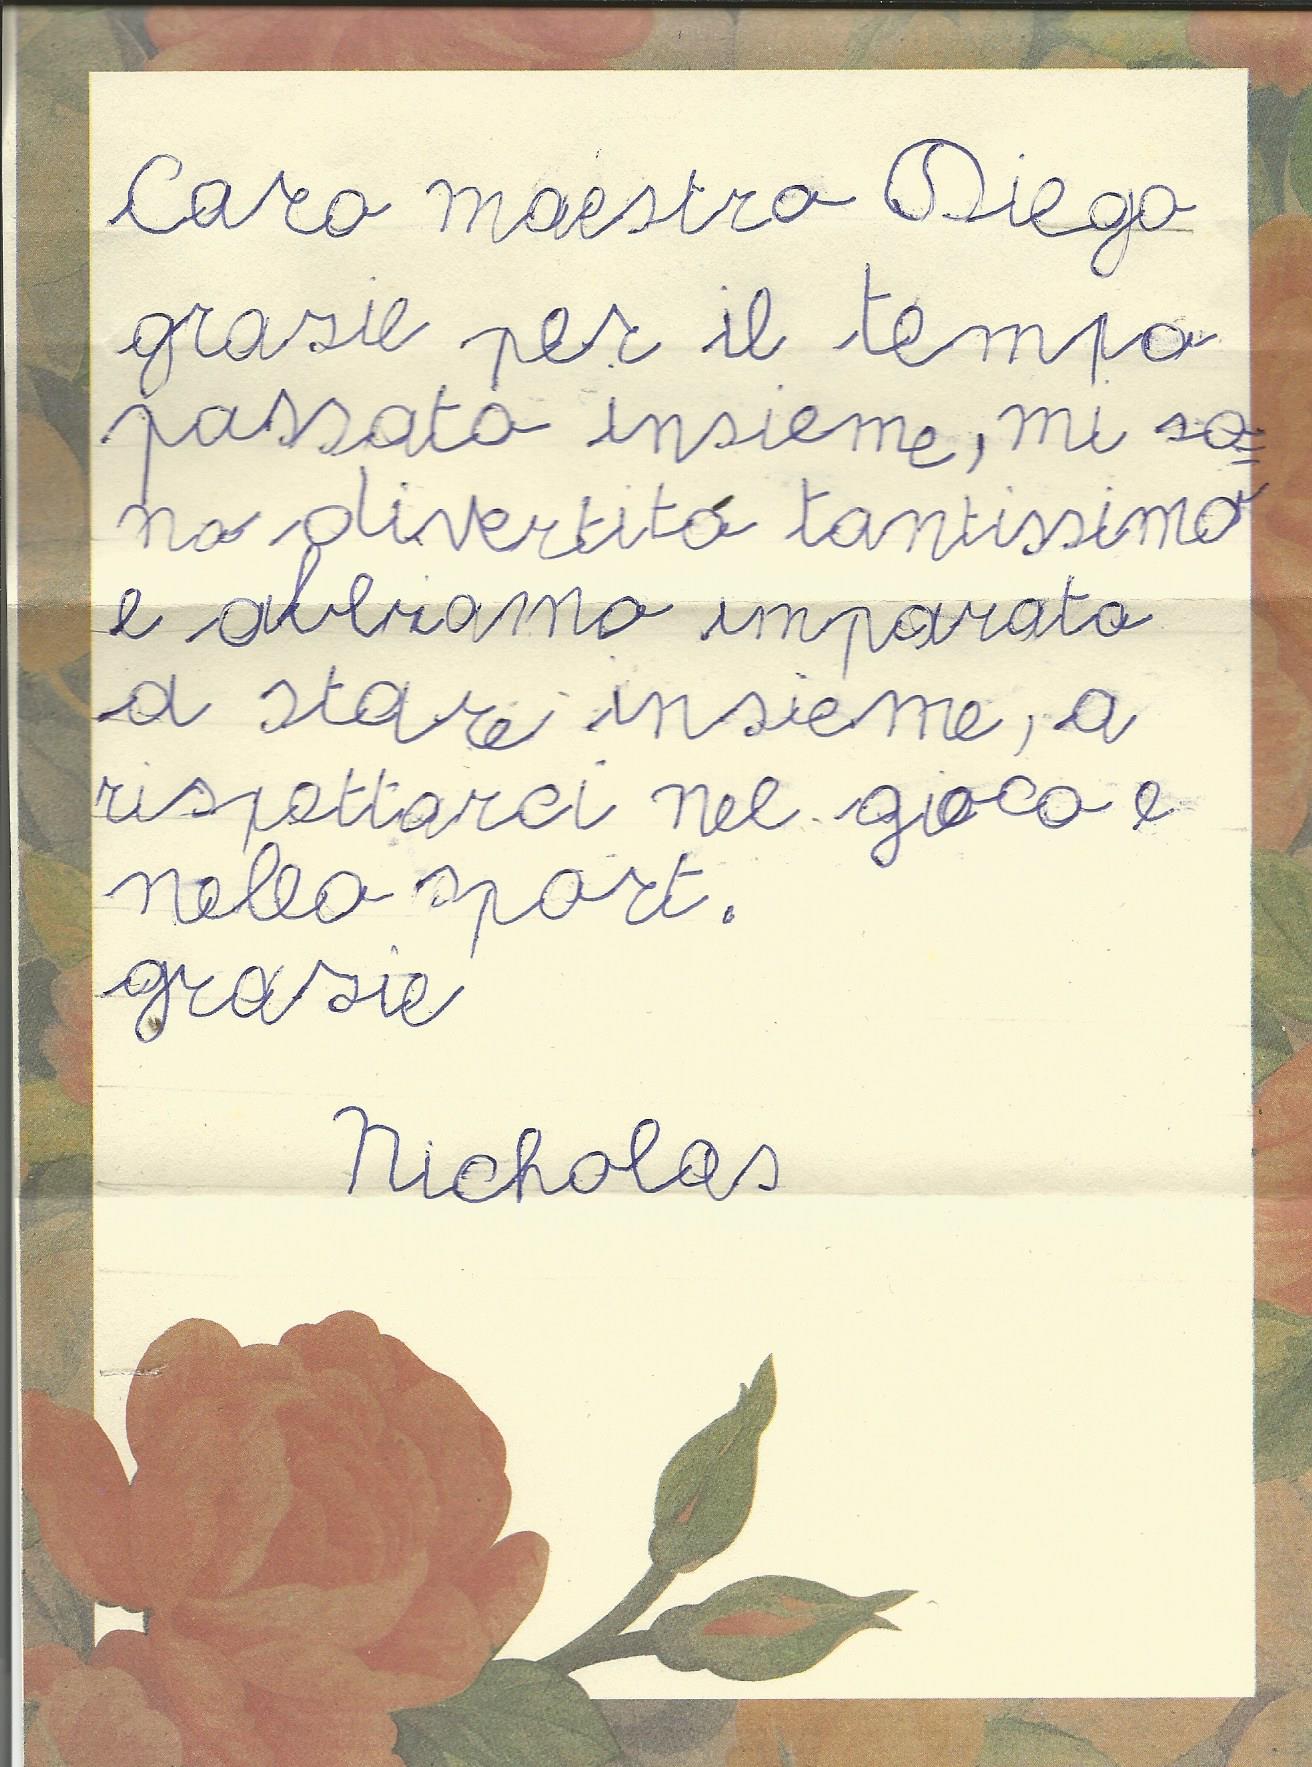 Caro maestro Diego
grazie per il tempo
passato insieme, mi so=
no divertito tantissimo
e abbiamo imparato
a stare insieme, a
rispettarci nel gioco e
nello sport.
grazie
Nicholas